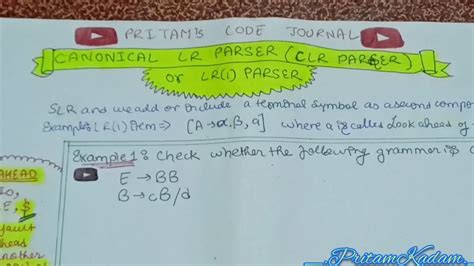 PRITAM'S CODE JOURNAL
CANONICAL LR PARSER (CLR PARSER)
or LR(1) PARSER
SLR and we add or include a terminal symbol as a second compo
Example: LR(1) item => [A→α.β, a] where a is called look ahead of
AHEAD
Example 1: Check whether the following grammer is
E → BB
B → cB/d
$
ault
head
nother
.PritamKadam.